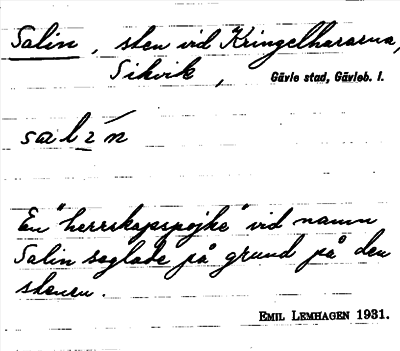 Salin, sten vid Kringelhararna,
Sikvik, Gävle stad, Gävleb. l.
salin
En "herrskapspojke" vid namn
Salin seglade på grund på den
stenen.
EMIL LEMHAGEN 1931.